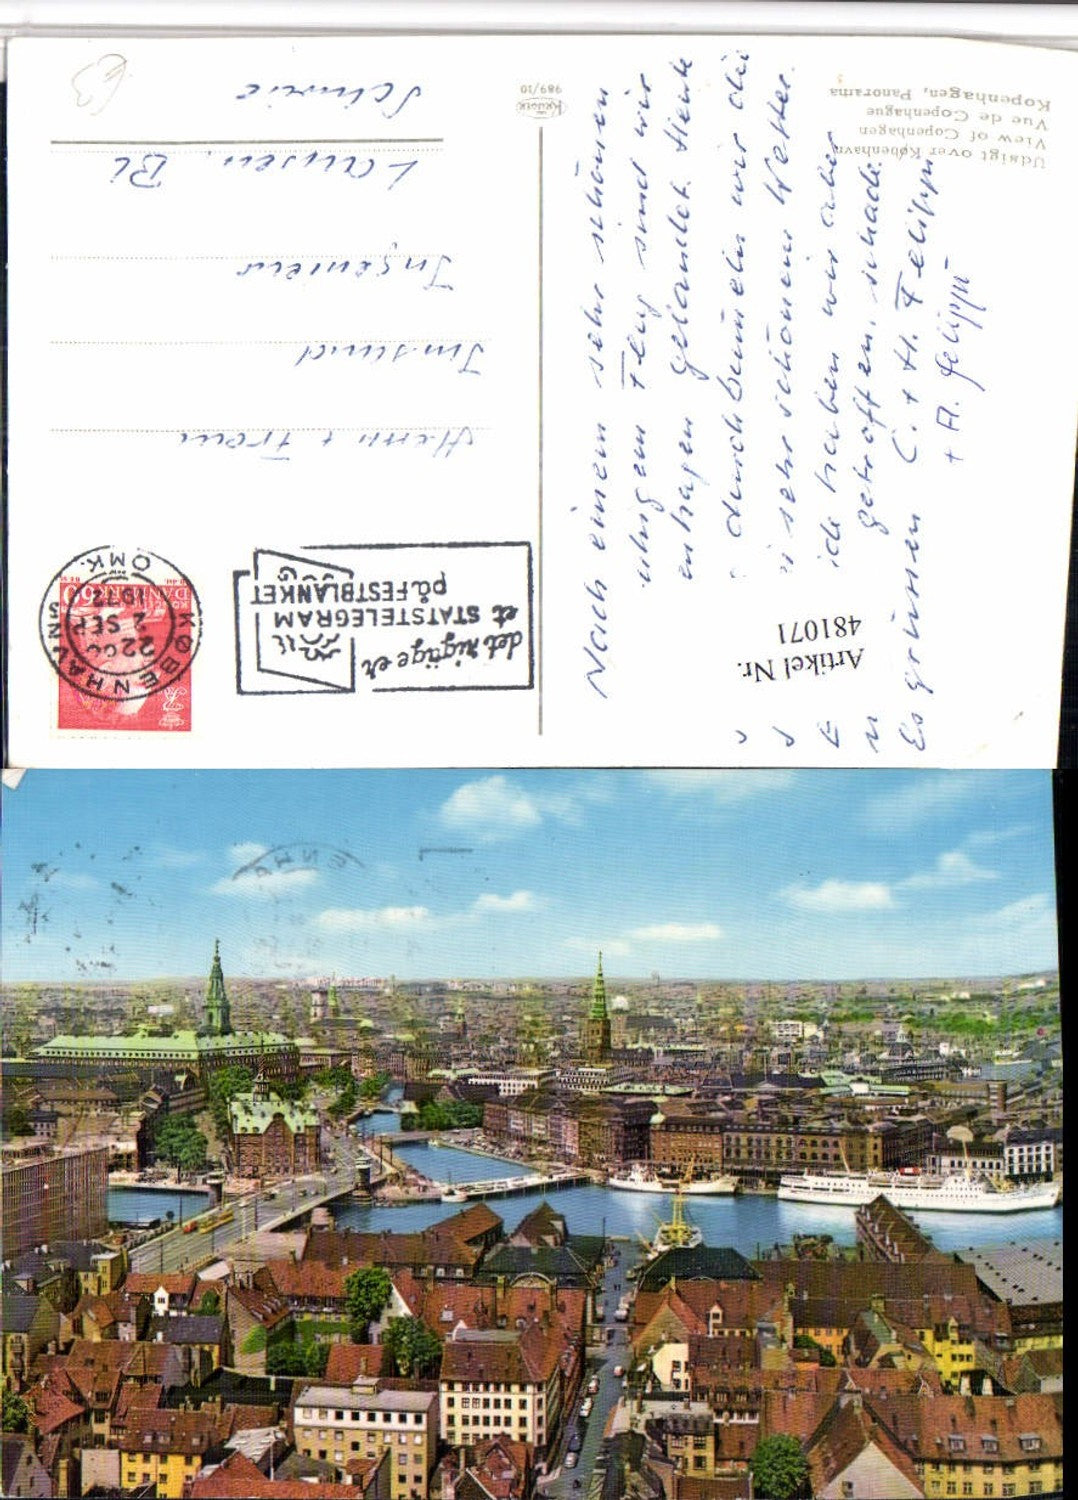 Udsigt over København
View of Copenhagen
Vue de Copenhague
Kopenhagen, Panorama
KRÜGER
989/10
Nach einem sehr schönen
ruhigen Flug sind wir
gelandet. Heute
durchbummeln wir die
sehr schönem Wetter.
haben wir aber
getroffen, schade.
Es grüssen C. + H. Felippi
+ A. Felippi
Artikel Nr.
481071
det rigtige er
et STATSTELEGRAM
på FESTBLANKET
KØBENHAVN
OMK.
2 SEP
1972
DANMARK
Herrn + Frau
Imsand
Ingenieur
Lausen, Bl
Schweiz
63